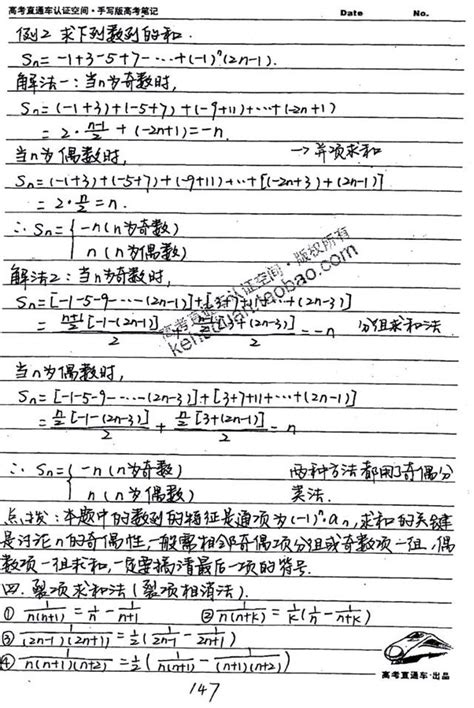 高考直通车认证空间·手写版高考笔记 Date No.
例2 求下列数列的和.
Sn=-1+3-5+7-…+(-1)ⁿ(2n-1).
解法一:当n为奇数时,
Sn=(-1+3)+(-5+7)+(-9+11)+…+(-2n+1)
=2·(n-1)/2+(-2n+1)=-n.
当n为偶数时, →并项求和
Sn=(-1+3)+(-5+7)+(-9+11)+…+[(-2n+3)+(2n-1)]
=2·n/2=n.
∴Sn={-n(n为奇数)
n(n为偶数)
解法2:当n为奇数时,
Sn=[-1-5-9-…-(2n-1)]+[3+7+11+…+(2n-3)]
=(n+1)/2[-1-(2n-1)]/2+(n-1)/2[3+(2n-3)]/2=-n 分组求和法
当n为偶数时,
Sn=[-1-5-9-…-(2n-3)]+[3+7+11+…+(2n-1)]
=n/2[-1-(2n-3)]/2+n/2[3+(2n-1)]/2=n
∴Sn={-n(n为奇数) 两种方法都用了奇偶分
n(n为偶数) 类法.
点拨:本题中的数列的特征是通项为(-1)ⁿ·an,求和的关键
是讨论n的奇偶性一般需相邻奇偶项分组或奇数项一组,偶
数项一组求和,一定要搞清最后一项的符号.
四.裂项求和法(裂项相消法).
① 1/n(n+1)=1/n-1/(n+1) ② 1/n(n+k)=1/k(1/n-1/(n+k))
③ 1/(2n-1)(2n+1)=1/2(1/(2n-1)-1/(2n+1))
④ 1/n(n+1)(n+2)=1/2(1/n(n+1)-1/(n+1)(n+2))
高考直通车·出品
147
高考直通车认证空间·版权所有